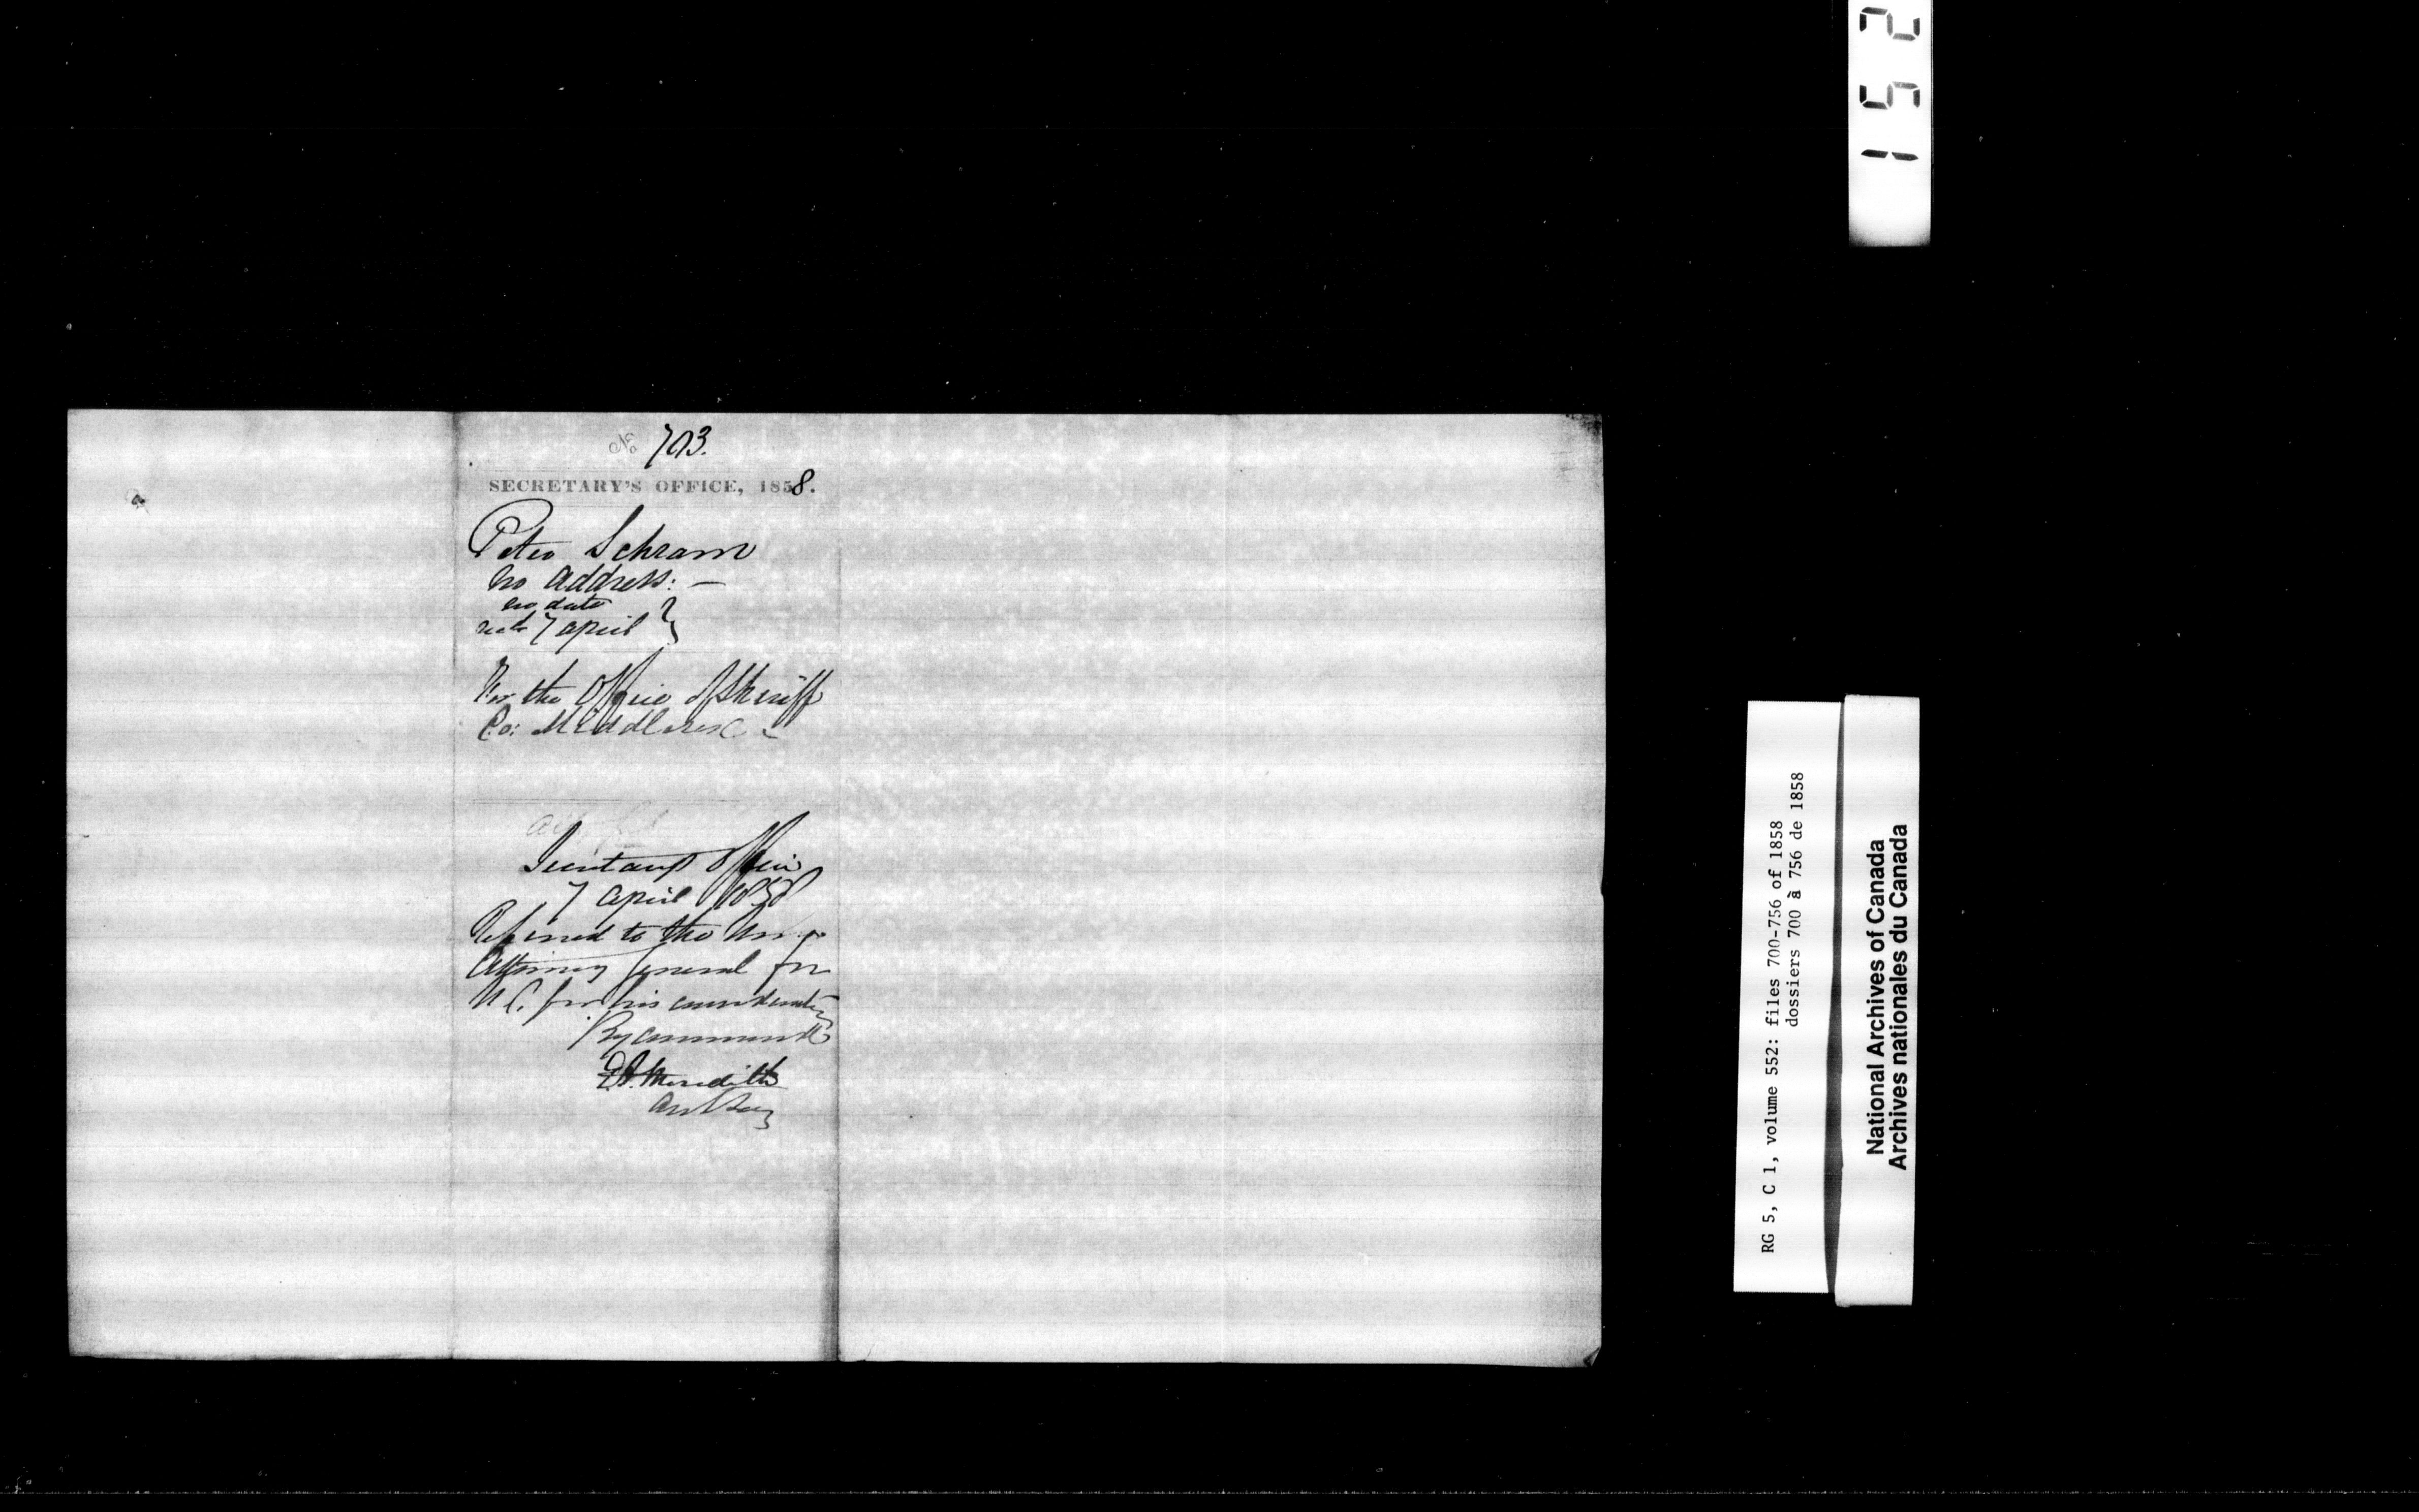 No 703.
SECRETARY'S OFFICE, 1858.
Peter Schram
no address. —
no date
recd 7 april }
For the Office of Sheriff
Co: Middlesex
Secretary's Office
7 April 1858
Referred to the Hon.
Attorney General for
U.C. for his consideration
By command
E.A. Meredith
Asst Secy
RG 5, C 1, volume 552: files 700-756 of 1858
dossiers 700 à 756 de 1858
National Archives of Canada
Archives nationales du Canada
152